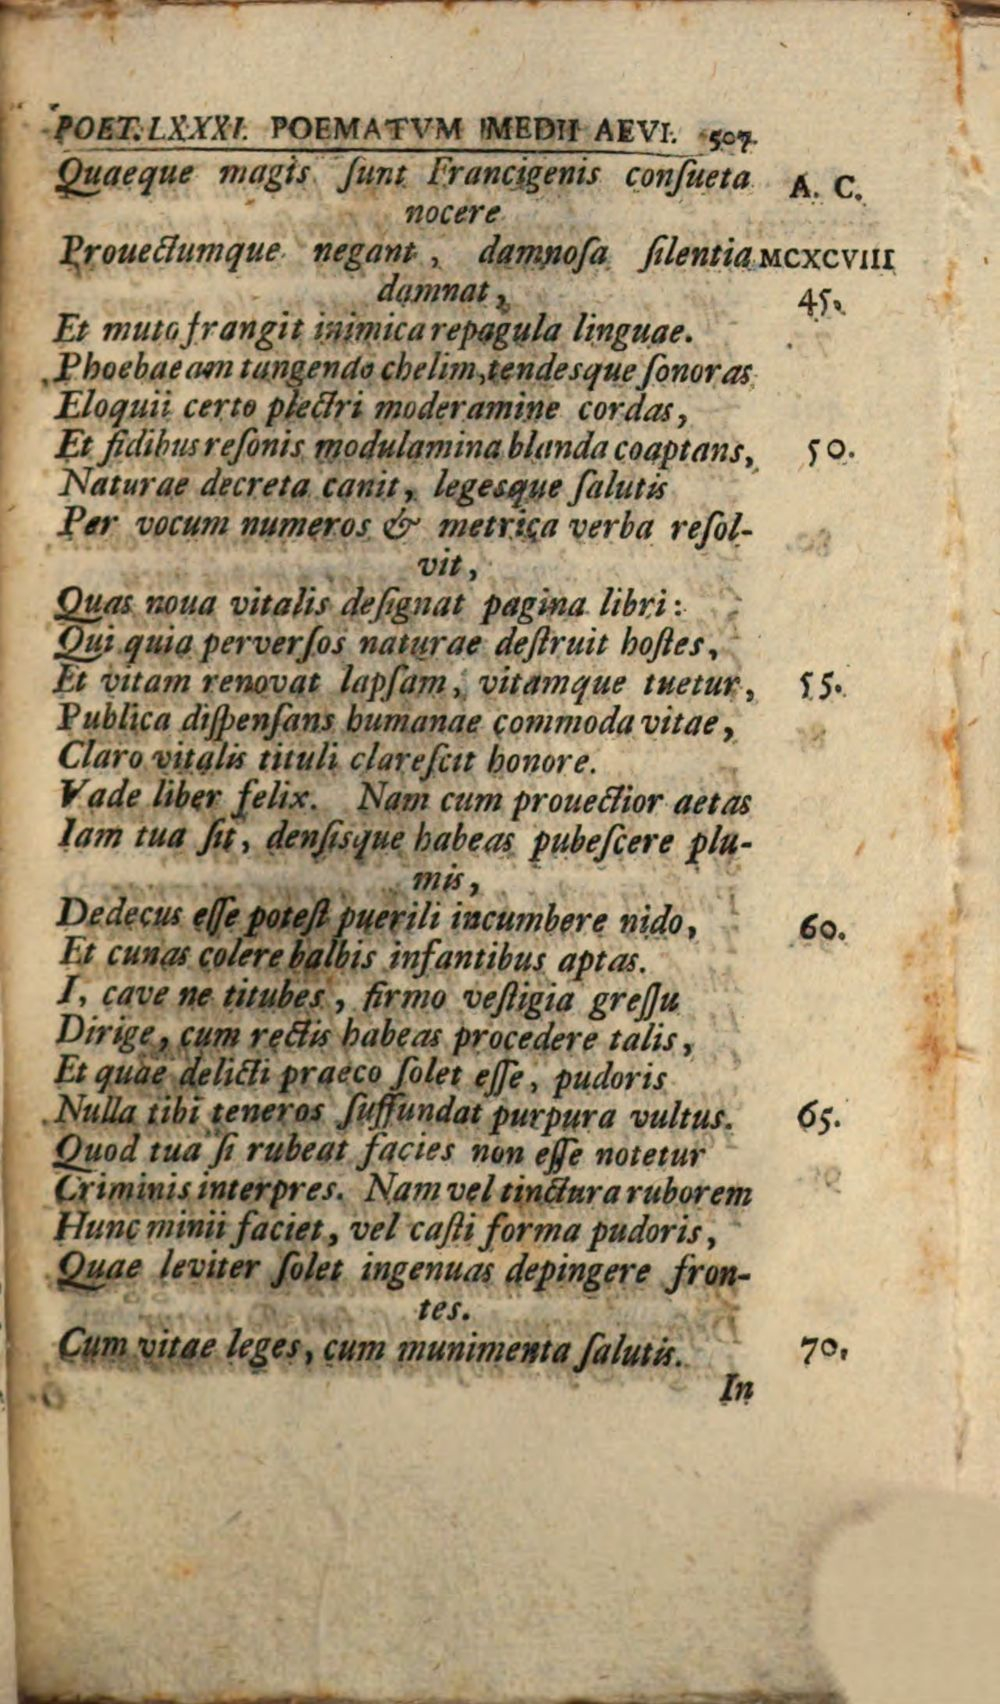 POET. LXXXI. POEMATVM MEDII AEVI. 507.
Quaeque magis ſunt Francigenis conſueta A. C.
nocere
Prouectumque negant, damnoſa ſilentia MCXCVIII
damnat, 45.
Et muto frangit inimica repagula linguae.
Phoebaeam tangendo chelim, tendesque ſonoras
Eloquii certo plectri moderamine cordas,
Et fidibus reſonis modulamina blanda coaptans, 50.
Naturae decreta canit, legesque ſalutis
Per vocum numeros & metrica verba reſol-
vit,
Quas noua vitalis deſignat pagina libri:
Qui quia perverſos naturae deſtruit hoſtes,
Et vitam renovat lapſam, vitamque tuetur, 55.
Publica diſpenſans humanae commoda vitae,
Claro vitalis tituli clareſcit honore.
Vade liber felix. Nam cum prouectior aetas
Iam tua ſit, denſisque habeas pubeſcere plu-
mis,
Dedecus eſſe poteſt puerili incumbere nido, 60.
Et cunas colere balbis infantibus aptas.
I, cave ne titubes, firmo veſtigia greſſu
Dirige, cum rectis habeas procedere talis,
Et quae delicti praeco ſolet eſſe, pudoris
Nulla tibi teneros ſuffundat purpura vultus. 65.
Quod tua ſi rubeat facies non eſſe notetur
Criminis interpres. Nam vel tinctura ruborem
Hunc minii faciet, vel caſti forma pudoris,
Quae leviter ſolet ingenuas depingere fron-
tes.
Cum vitae leges, cum munimenta ſalutis. 70.
In